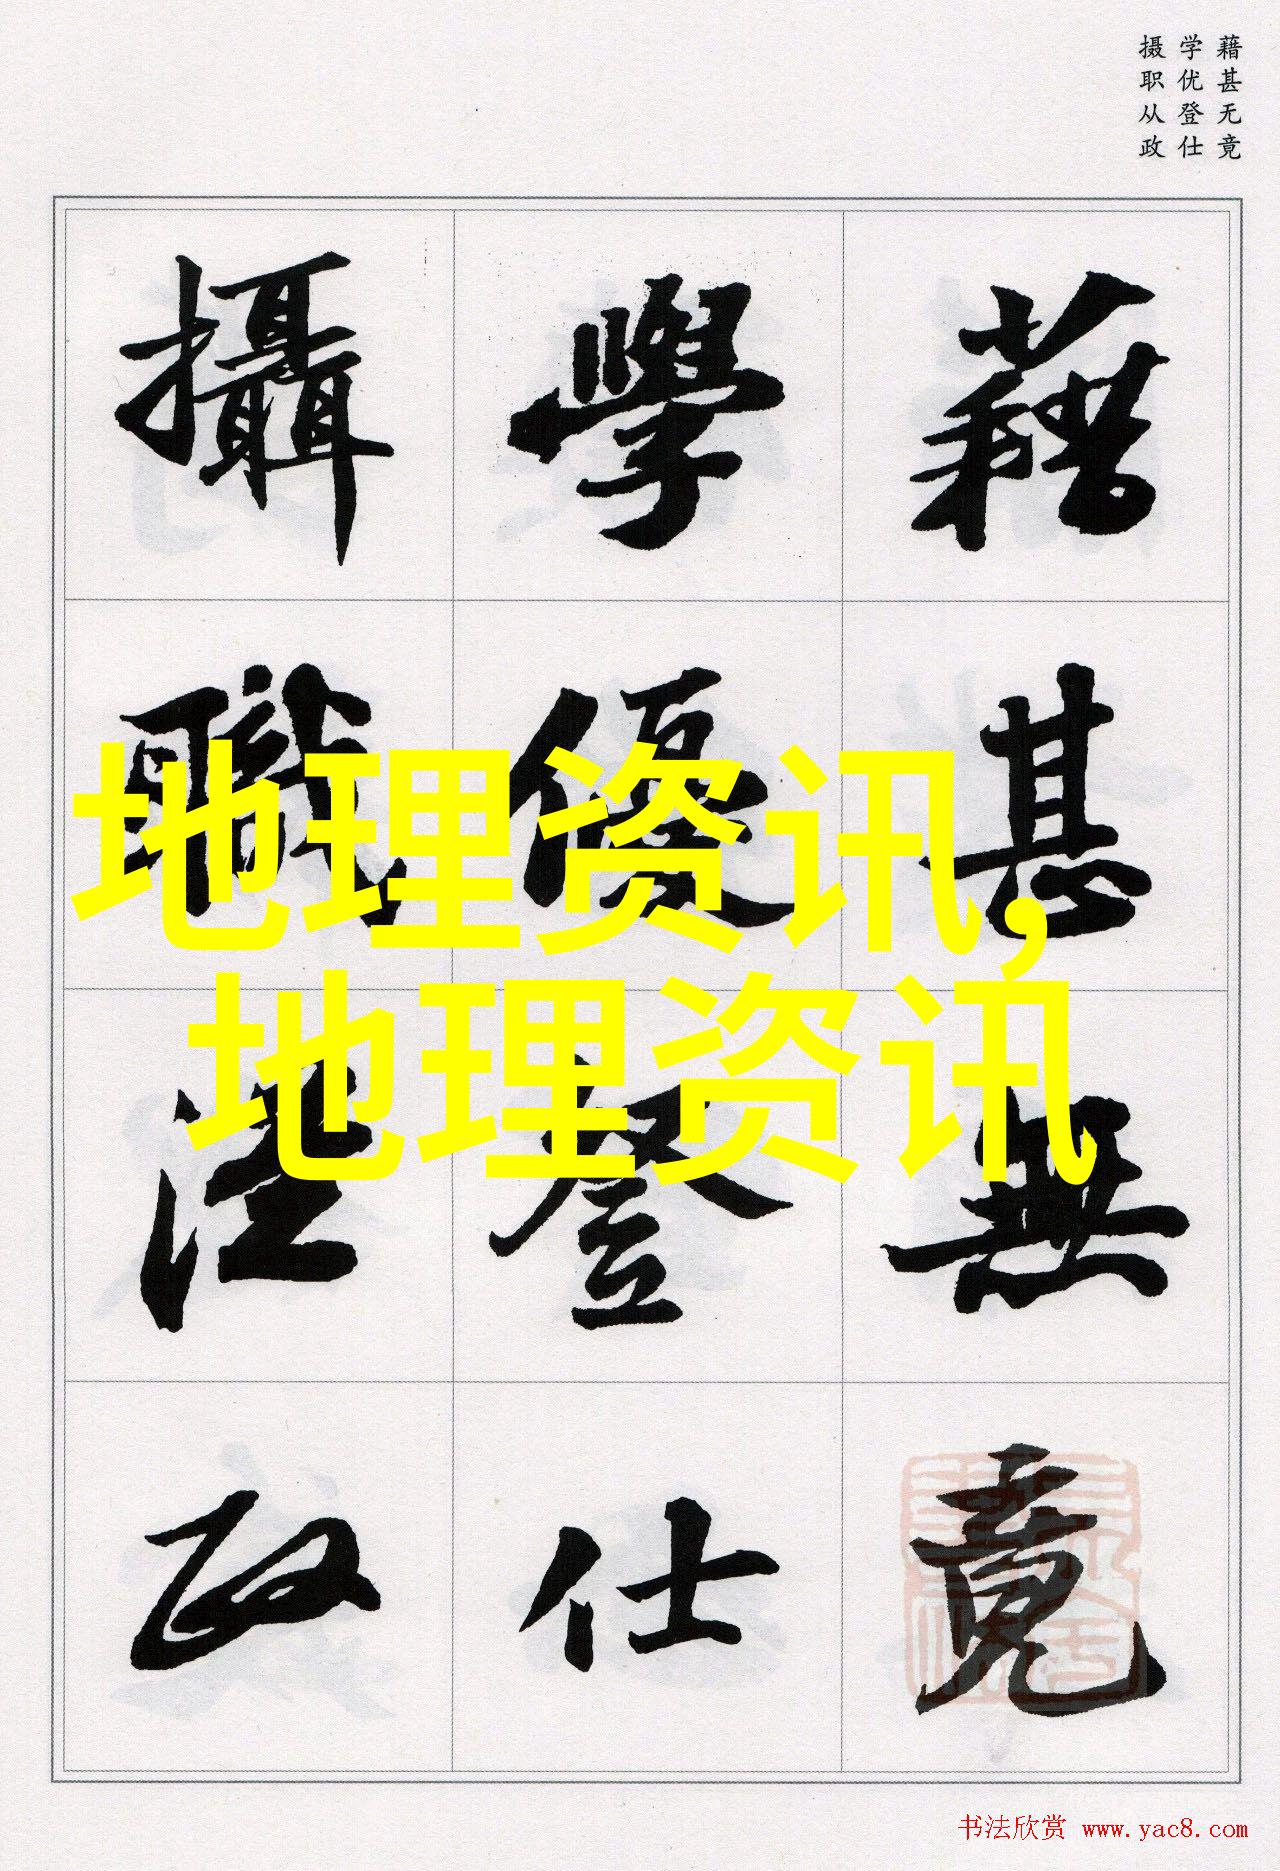 藉甚无竟
学优登仕
摄职从政
藉甚無竟
學優登仕
攝職從政
地理资讯,
地理资讯
书法欣赏 www.yac8.com